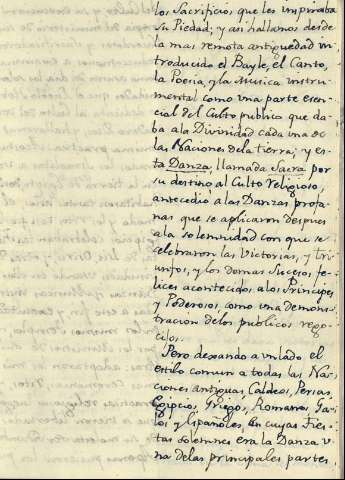 los Sacrificios que les inspiraba
su Piedad; y asi hallamos desde
la mas remota antiguedad in
troducido el Bayle, el Canto,
la Poesia, y la Musica instru
mental como vna parte esen
cial del Culto publico que da
ba ala Divinidad cada vna de
las Naciones dela tierra; y es
ta Danza, llamada Sacra por
su destino al Culto religioso,
antecedio alas Danzas profa
nas que se aplicaron despues
ala solemnidad con que se
celebraron las Victorias, y tri
unfos, y los demas Sucesos fe
lices acontecidos alos Principes
y Poderosos, como vna demons
tracion delos publicos rego
cijos.
Pero dexando a vn lado el
estilo comun a todas las Na
ciones antiguas, Caldeos, Persas,
Egipcios, Griegos, Romanos, Ga
los y Españoles en cuyas Fies
tas solemnes era la Danza v
na delas principales partes